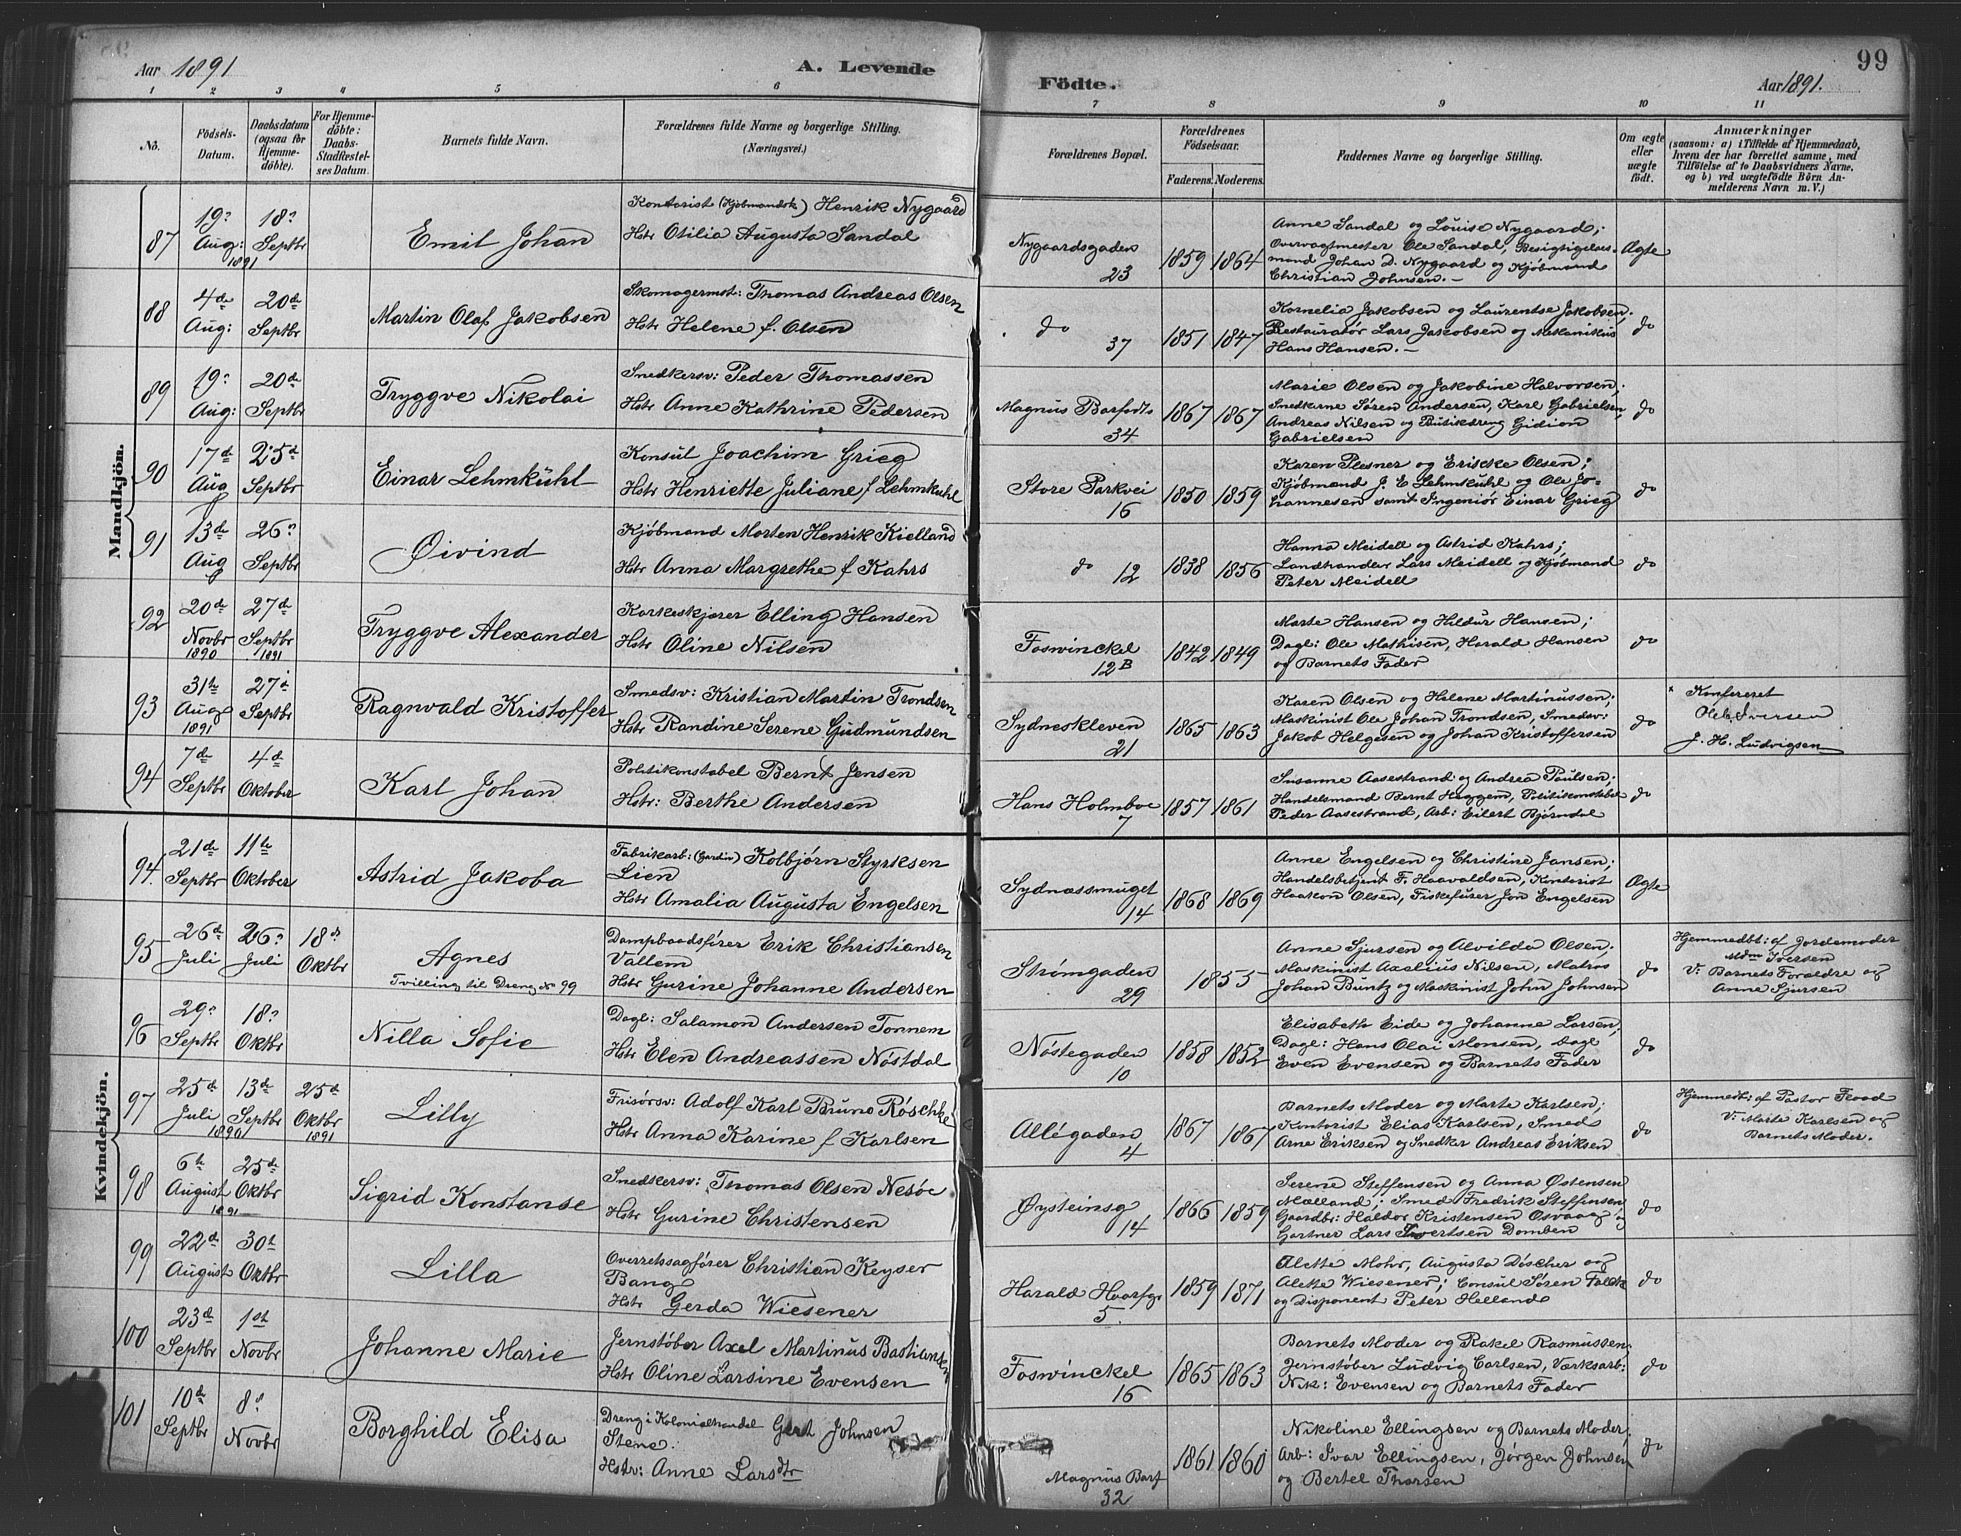 Aar 1891
A. Levende
Födte.
Aar 1891.
99
1 2 3 4 5 6 7 8 9 10 11
No.
Födsels-
Datum.
Daabsdatum
(ogsaa for
Hjemme-
döbte).
For Hjemme-
döbte:
Daabs-
Stadfæstel-
ses Datum.
Barnets fulde Navn.
Forældrenes fulde Navne og borgerlige Stilling.
(Næringsvei.)
Forældrenes Bopæl.
Forældrenes
Födselsaar.
Faderens. Moderens.
Faddernes Navne og borgerlige Stilling.
Om ægte
eller
uægte
födt.
Anmærkninger
(saasom: a) i Tilfælde af Hjemmedaab,
hvem der har forrettet samme, med
Tilföielse af to Daabsvidners Navne,
og b) ved uægtefödte Börn An-
melderens Navn m. V.)
Mandkjön.
87
19?
Aug:
1891
18?
Septbr
Emil Johan
Kontorist (Kjøbmandsk) Henrik Nygaard
Hstr Otilia Augusta Sandal
Nygaardsgaden
23
1859 1864
Anne Sandal og Louise Nygaard;
Overvagtmester Ole Sandal, Besigtigelses-
mand Johan D. Nygaard og Kjøbmand
Christian Johnsen.-
Ægte
88
4de
Aug:
20de
Septbr
Martin Olaf Jakobsen
Skomagermst: Thomas Andreas Olsen
Hstr Helene f. Olsen
do
37
1851 1847
Kornelia Jakobsen og Laurentse Jakobsen;
Restauratør Lars Jakobsen og Mekanikus
Hans Hansen.-
do
89
19?
Aug:
20de
Septbr
Tryggve Nikolai
Snedkersv: Peder Thomassen
Hstr Anne Kathrine Pedersen
Magnus Barfodts
34
1867 1867
Marie Olsen og Jakobine Halvorsen;
Snedkerne Søren Andersen, Karl Gabrielsen,
Andreas Nilsen og Butikdreng Gidion
Gabrielsen
do
90
17de
Aug
25d
Septbr
Einar Lehmkühl
Konsul Joachim Grieg
Hstr Henriette Juliane f Lehmkuhl
Store Parkvei
16
1850 1859
Karen Plesner og Erikke Olsen;
Kjøbmand J. E Lehmkuhl og Ole Jo-
hannesen samt Ingeniør Einar Grieg
do
91
13de
Aug
26?
Septbr
Øivind
Kjøbmand Morten Henrik Kielland
Hstr Anna Margrethe f Kahrs
do 12
1838 1856
Hanna Meidell og Astrid Kahrs;
Landhandler Lars Meidell og Kjøbmand
Peter Meidell
do
92
20de
Novbr
1890
27de
Septbr
1891
Tryggve Alexander
Korkeskjærer Elling Hansen
Hstr Oline Nilsen
Foswinckel
12B
1842 1849
Marte Hansen og Hildur Hansen;
Dagl: Ole Mathisen, Harald Hansen
og Barnets Fader
do
93
31te
Aug
1891
27d
Septbr
Ragnvald Kristoffer
Smedsv: Kristian Martin Trondsen
Hstr Randine Serene Gudmundsen
Sydneskleven
21
1865 1863
Karen Olsen og Helene Martinussen;
Maskinist Ole Johan Trondsen, Smedsv:
Jakob Helgesen og Johan Kristoffersen
do
x Konfereret
Ole Iversen
J. H. Ludvigsen
94
7de
Septbr
4d
Oktober
Karl Johan
Politikonstabel Bernt Jensen
Hstr: Berthe Andersen
Hans Holmboe
7
1857 1861
Susanne Aasestrand og Andrea Paulsen;
Handelsmand Bernt Heggem, Politikonstabel
Peder Aasestrand, Arb: Eilert Bjørndal
do
Kvindekjön.
94.
21de
Septbr
11te
Oktober
Astrid Jakoba
Fabrikarb: (Gardin) Kolbjørn Styrksen
Lien
Hstr Amalia Augusta Engelsen
Sydnæssmuget
14
1868 1869
Anne Engelsen og Christine Jansen;
Handelsbetjent F. Haavaldsen, Kontorist
Haakon Olsen, Fiskefører Jon Engelsen
Ægte
95
26d
Juli
26?
Juli
18de
Oktbr
Agnes
Tvilling til Dreng No 99
Dampbaadsfører Erik Christiansen
Vallem
Hstr Gurine Johanne Andersen
Strømgaden
29
1855
Anne Sjursen og Alvilde Olsen;
Maskinist Axelius Nilsen, Matros
Johan Buntz og Maskinist John Johnsen
do
Hjemmedbt: af Jordemoder
Mdm Iversen
V: Barnets Forældre og
Anne Sjursen
96
29?
Septbr
18?
Oktbr
Nilla Sofie
Dagl: Salamon Andersen Tonnem
Hstr Elen Andreassen Nøstdal
Nøstegaden
10
1858 1852
Elisabeth Eide og Johanne Larsen;
Dagl: Hans Olai Monsen, Dagl
Even Evensen og Barnets Fader
do
97
25d
Juli
1890
13de
Septbr
25d
Oktbr
1891
Lilly
Frisørsv: Adolf Karl Bruno Røschke
Hstr Anna Karine f Karlsen
Allégaden
4
1867 1867
Barnets Moder og Marte Karlsen;
Kontorist Elias Karlsen, Smed
Arne Eriksen og Snedker Andreas Eriksen
do
Hjemmedbt: af Pastor Flood
V: Marte Karlsen og
Barnets Moder.
98
6te
August
1891
25de
Oktbr
Sigrid Konstanse
Snedkersv: Thomas Olsen Nesøe
Hstr Gurine Christensen
Øysteinsg
14
1866 1859
Serene Steffensen og Anna Østensen
Mælland; Smed Fredrik Steffensen
Gaardbr: Haldor Kristensen Osvaag og
Gartner Lars Sivertsen Domben
do
99
22d
August
30t
Oktbr
Lilla
Overretssagfører Christian Keyser
Bang
Hstr Gerda Wiesener
Harald Haarfgr
5
1859 1871
Alette Mohr, Augusta Döscher og
Alette Wiesener; Consul Sören Falck
og Disponent Peter Helland
do
100
23d
Septbr
1st
Novbr
Johanne Marie
Jernstøber Axel Martinus Bastiansen
Hstr Oline Larsine Evensen
Foswinckel
16
1865 1863
Barnets Moder og Rakel Rasmussen;
Jernstøber Ludvig Carlsen, Værksarb:
Nik: Evensen og Barnets Fader
do
101
10de
Septbr
8?
Novbr
Borghild Elisa
Dreng i Kolonialhandel Gert Johnsen
Stene.
Hstr: Anne Larsdtr
Magnus Barf
32
1861 1860
Nikoline Ellingsen og Barnets Moder;
Arb: Ivar Ellingsen, Jørgen Johnsen
og Bertel Thorsen
do